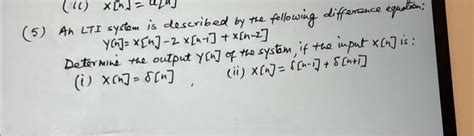 (ii) x[n] = u[n]
(5) An LTI system is described by the following difference equation:
y[n] = x[n] - 2 x[n-1] + x[n-2]
Determine the output y[n] of the system, if the input x[n] is :
(i) x[n] = δ[n] , (ii) x[n] = δ[n-1] + δ[n+1]